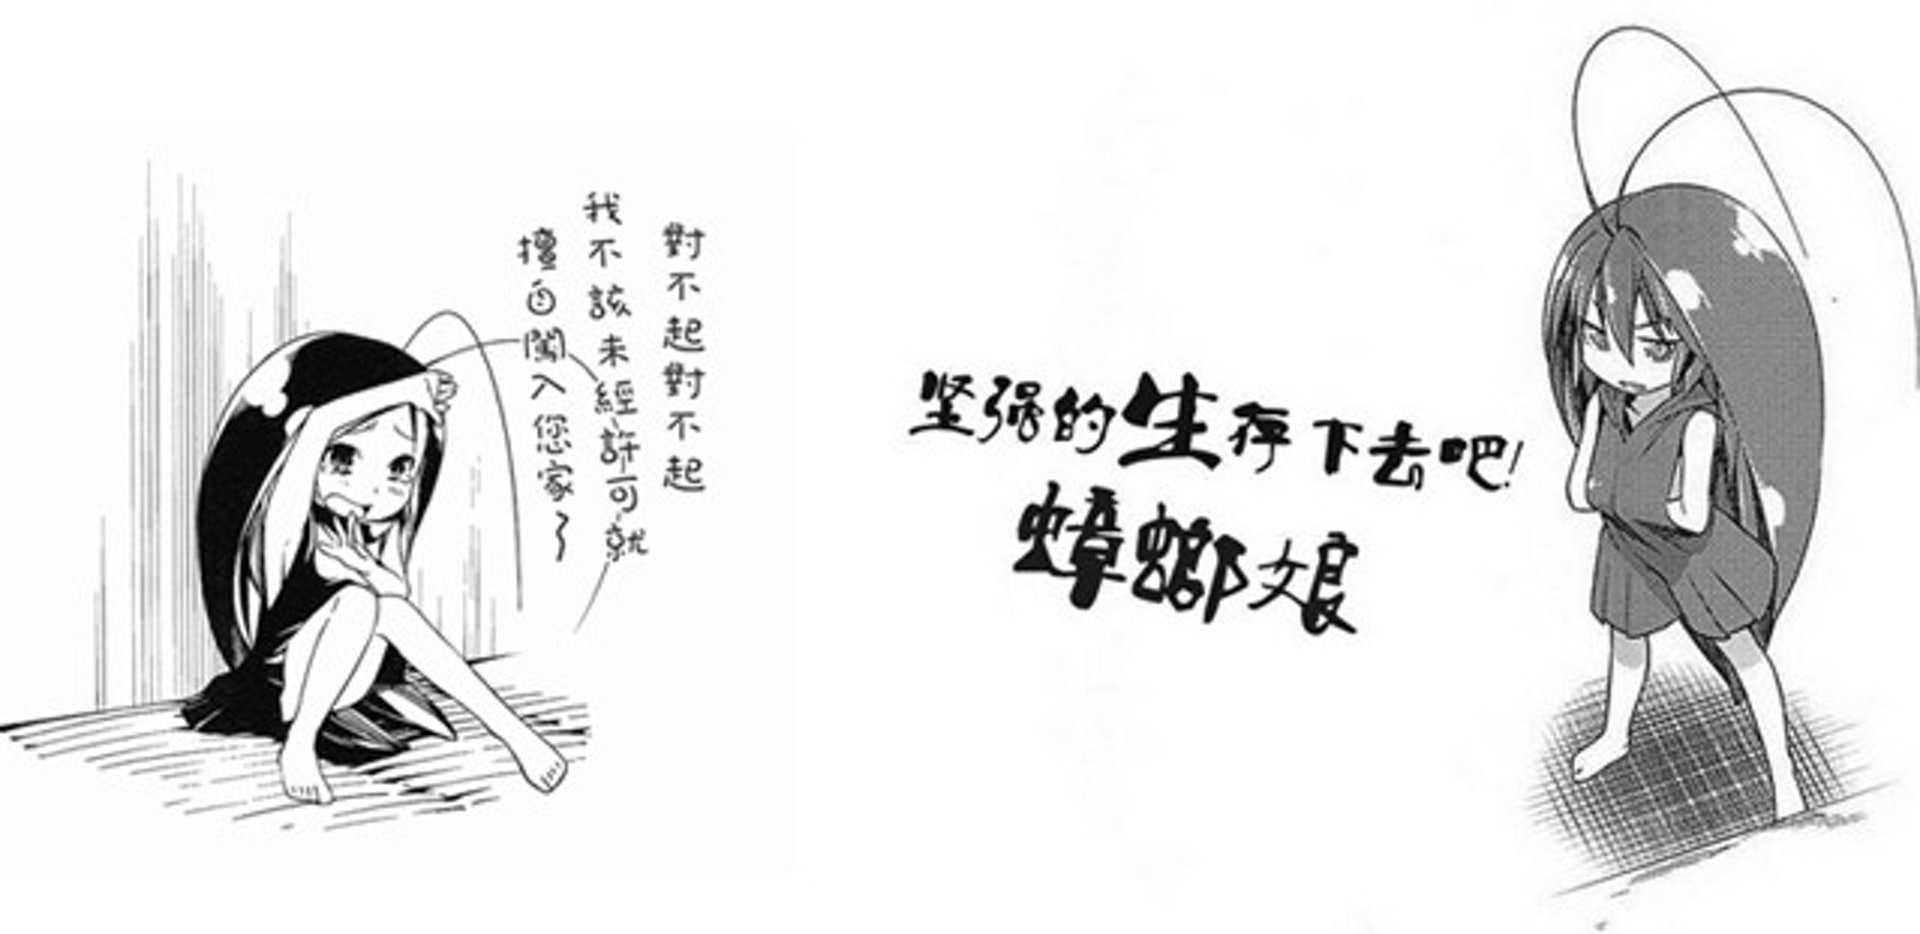 對不起對不起
我不該未經許可就
擅自闖入您家～
坚强的生存下去吧!
蟑螂娘